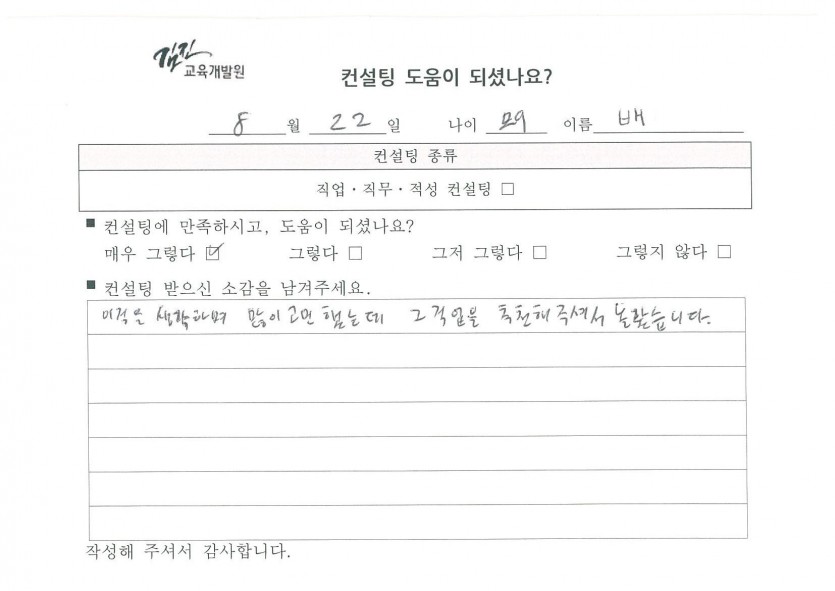 김진
교육개발원
컨설팅 도움이 되셨나요?
8 월 22 일 나이 이름 배
컨설팅 종류
직업·직무·적성 컨설팅 □
■ 컨설팅에 만족하시고, 도움이 되셨나요?
매우 그렇다 ☑ 그렇다 □ 그저 그렇다 □ 그렇지 않다 □
■ 컨설팅 받으신 소감을 남겨주세요.
이직을 생각하며 많이 고민 했는데 그 직업을 추천해주셔서 놀랐습니다.
작성해 주셔서 감사합니다.